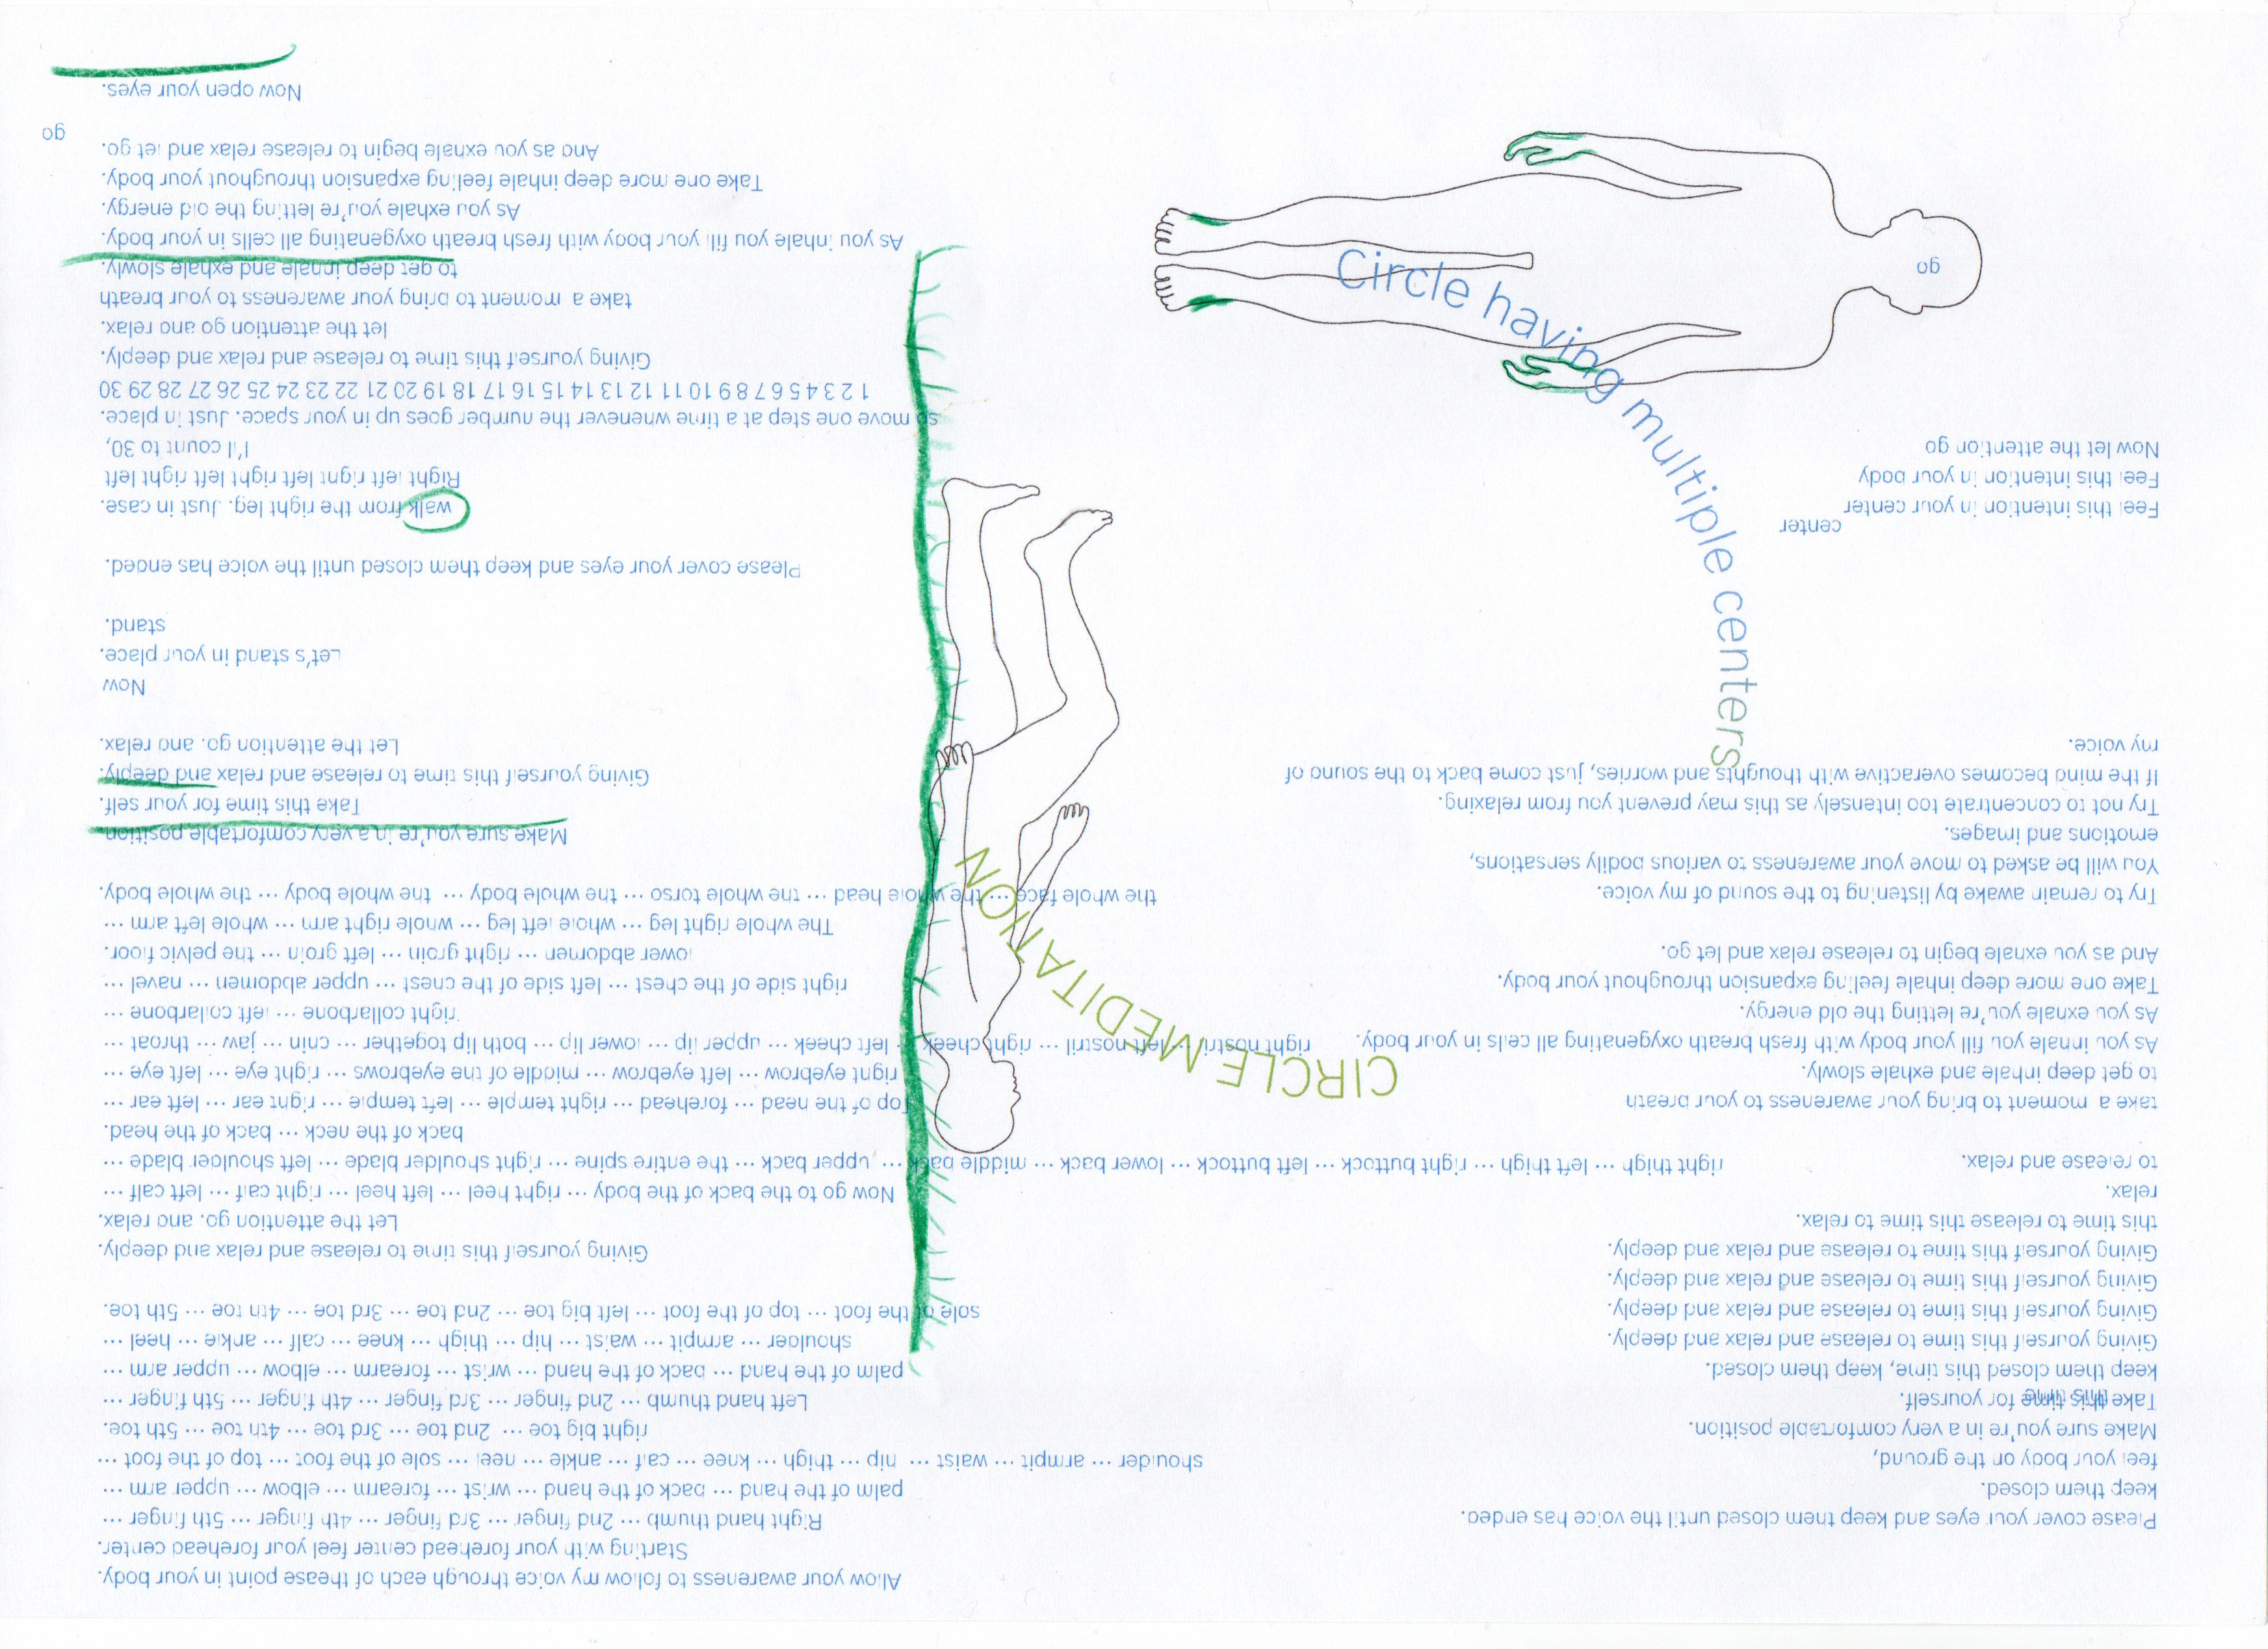 Please cover your eyes and keep them closed until the voice has ended.
keep them closed.
feel your body on the ground,
Make sure you're in a very comfortable position.
Take this time for yourself.
keep them closed this time, keep them closed.
Giving yourself this time to release and relax and deeply.
Giving yourself this time to release and relax and deeply.
Giving yourself this time to release and relax and deeply.
Giving yourself this time to release and relax and deeply.
this time to release this time to relax.
relax.
to release and relax.
take a moment to bring your awareness to your breath
to get deep inhale and exhale slowly.
As you inhale you fill your body with fresh breath oxygenating all cells in your body.
As you exhale you're letting the old energy.
Take one more deep inhale feeling expansion throughout your body.
And as you exhale begin to release relax and let go.
Try to remain awake by listening to the sound of my voice.
You will be asked to move your awareness to various bodily sensations,
emotions and images.
Try not to concentrate too intensely as this may prevent you from relaxing.
If the mind becomes overactive with thoughts and worries, just come back to the sound of
my voice.
center
Feel this intention in your center
Feel this intention in your body
Now let the attention go
go
CIRCLE MEDITATION
Circle having multiple centers
Allow your awareness to follow my voice through each of thease point in your body.
Starting with your forehead center feel your forehead center.
Right hand thumb ··· 2nd finger ··· 3rd finger ··· 4th finger ··· 5th finger ···
palm of the hand ··· back of the hand ··· wrist ··· forearm ··· elbow ··· upper arm ···
shoulder ··· armpit ··· waist ··· hip ··· thigh ··· knee ··· calf ··· ankle ··· heel ··· sole of the foot ··· top of the foot ···
right big toe ··· 2nd toe ··· 3rd toe ··· 4th toe ··· 5th toe.
Left hand thumb ··· 2nd finger ··· 3rd finger ··· 4th finger ··· 5th finger ···
palm of the hand ··· back of the hand ··· wrist ··· forearm ··· elbow ··· upper arm ···
shoulder ··· armpit ··· waist ··· hip ··· thigh ··· knee ··· calf ··· ankle ··· heel ···
sole of the foot ··· top of the foot ··· left big toe ··· 2nd toe ··· 3rd toe ··· 4th toe ··· 5th toe.
Giving yourself this time to release and relax and deeply.
Let the attention go. and relax.
Now go to the back of the body ··· right heel ··· left heel ··· right calf ··· left calf ···
right thigh ··· left thigh ··· right buttock ··· left buttock ··· lower back ··· middle back ··· upper back ··· the entire spine ··· right shoulder blade ··· left shoulder blade ···
back of the neck ··· back of the head.
Top of the head ··· forehead ··· right temple ··· left temple ··· right ear ··· left ear ···
right eyebrow ··· left eyebrow ··· middle of the eyebrows ··· right eye ··· left eye ···
right nostril ··· left nostril ··· right cheek ··· left cheek ··· upper lip ··· lower lip ··· both lip together ··· chin ··· jaw ··· throat ···
right collarbone ··· left collarbone ···
right side of the chest ··· left side of the chest ··· upper abdomen ··· navel ···
lower abdomen ··· right groin ··· left groin ··· the pelvic floor.
The whole right leg ··· whole left leg ··· whole right arm ··· whole left arm ···
the whole face ··· the whole head ··· the whole torso ··· the whole body ··· the whole body ··· the whole body.
Make sure you're in a very comfortable position
Take this time for your self.
Giving yourself this time to release and relax and deeply.
Let the attention go. and relax.
Now
Let's stand in your place.
stand.
Please cover your eyes and keep them closed until the voice has ended.
walk from the right leg. Just in case.
Right left right left right left right left
I'll count to 30,
so move one step at a time whenever the number goes up in your space. Just in place.
1 2 3 4 5 6 7 8 9 10 11 12 13 14 15 16 17 18 19 20 21 22 23 24 25 26 27 28 29 30
Giving yourself this time to release and relax and deeply.
let the attention go and relax.
take a moment to bring your awareness to your breath
to get deep inhale and exhale slowly.
As you inhale you fill your body with fresh breath oxygenating all cells in your body.
As you exhale you're letting the old energy.
Take one more deep inhale feeling expansion throughout your body.
And as you exhale begin to release relax and let go.
go
Now open your eyes.